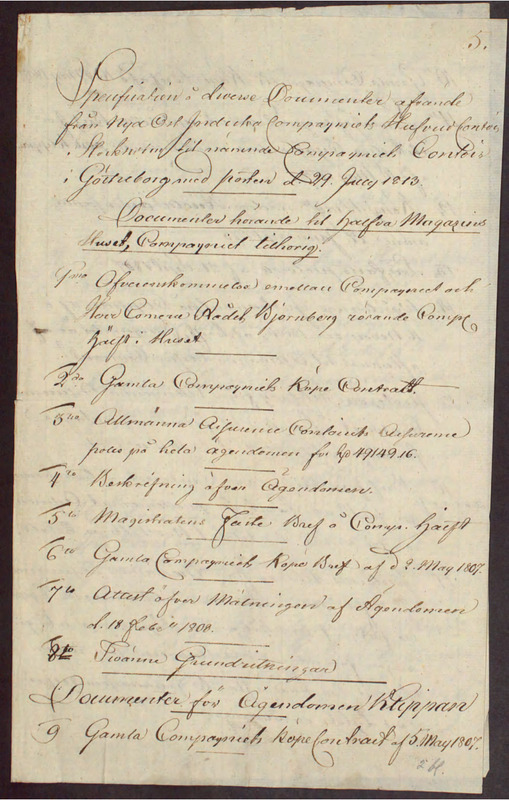 5.
Specification å diverse Documenter afsände
från Nya Ost Indiska Compagniets Hufvud Contoir
i Stockholm til nämnde Compagniets Contoir
i Götheborg med posten d. 29. July 1813.
Documenter hörande til halfva Magazins
Huset, Compagniet tillhörig.
1mo Öfverenskommelse emellan Compagniet och
Herr Commerce Rådet Björnberg rörande Comp.
hälft i Huset
2do Gamla Compagniets Köpe Contract.
3tio Allmänna Assurence Contoirets Assurence
police på hela ägendomen för 49149.16.
4to Beskrifning öfver Ägendomen.
5to Magistratens Faste Bref å Comp. hälft
6to Gamla Compagniets Köpe Bref af d. 2. May 1807.
7to Attest öfver Mätningen af Ägendomen
d. 18 Feb. 1808.
8to Tvänne Grundritningar
Documenter för Ägendomen Klippan
9 Gamla Compagniets Köpe Contract af 5. May 1807.